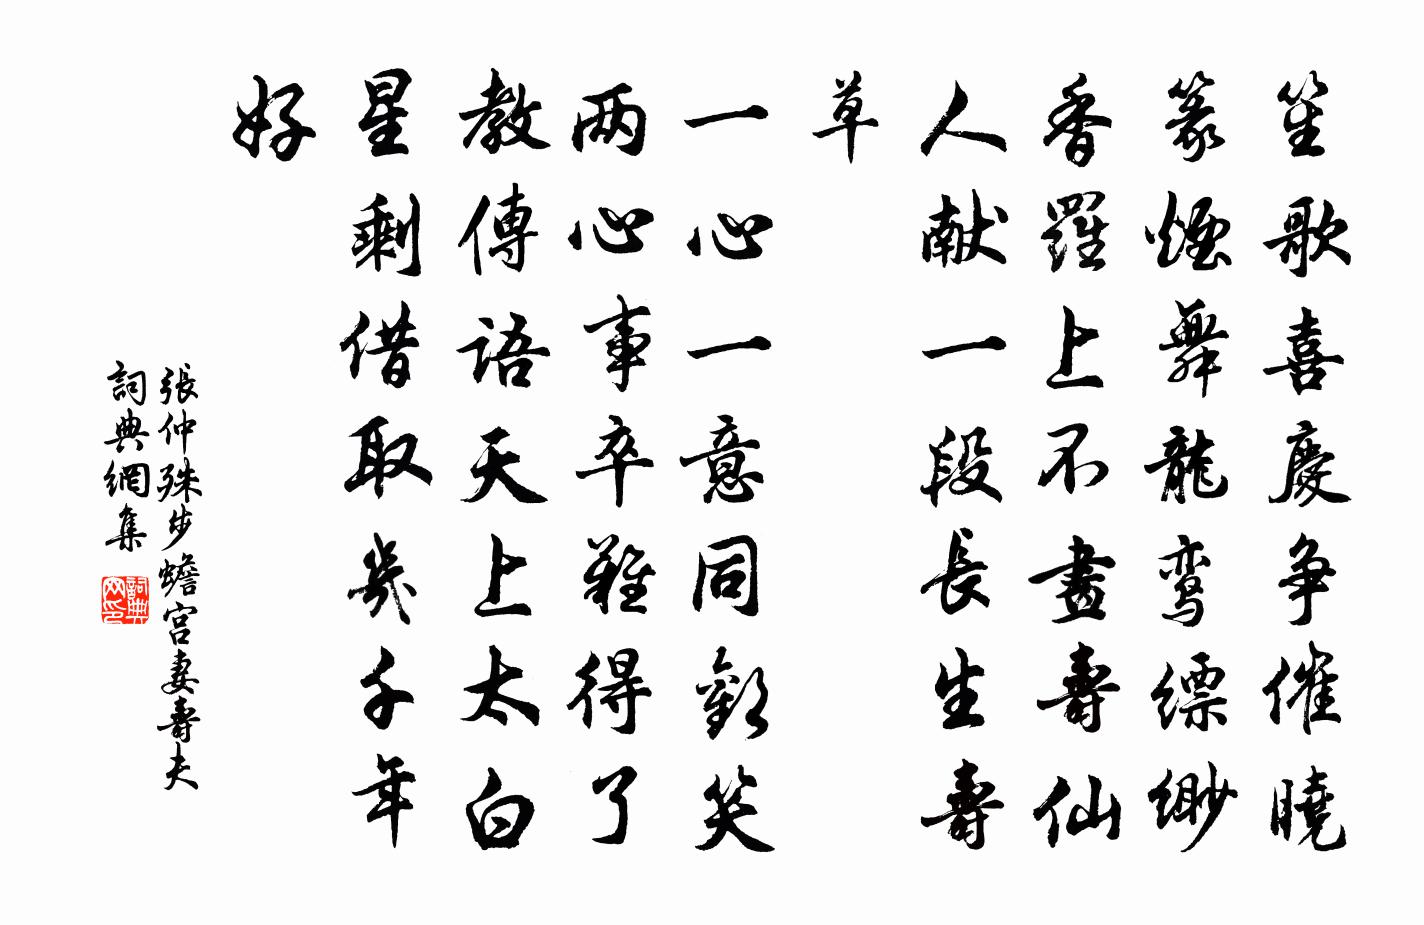 笙歌喜慶争催曉
篆煙舞龍鸾縹緲
香羅上不畫壽仙
人献一段長生壽
草
一心一意同歡笑
两心事卒難得了
教傳語天上太白
星剩借取幾千年
好
張仲殊步蟾宫妻壽夫
詞典網集
詞典